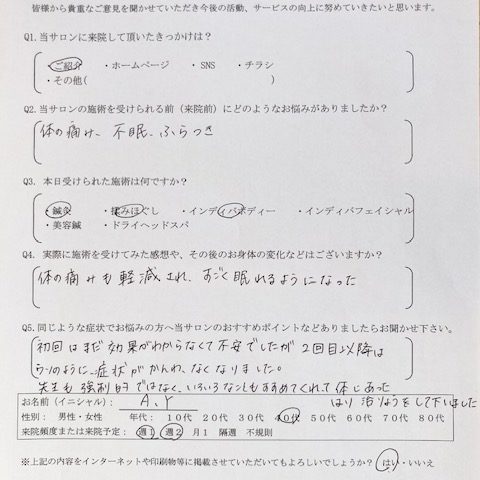 皆様から貴重なご意見を聞かせていただき今後の活動、サービスの向上に努めていきたいと思います。
Q1.当サロンに来院して頂いたきっかけは？
・ご紹介 ・ホームページ ・SNS ・チラシ
・その他( )
Q2.当サロンの施術を受けられる前（来院前）にどのようなお悩みがありましたか？
体の痛み、不眠、ふらつき
Q3. 本日受けられた施術は何ですか？
・鍼灸 ・揉みほぐし ・インディバボディー ・インディバフェイシャル
・美容鍼 ・ドライヘッドスパ
Q4. 実際に施術を受けてみた感想や、その後のお身体の変化などはございますか？
体の痛みも軽減され、すごく眠れるようになった
Q5.同じような症状でお悩みの方へ当サロンのおすすめポイントなどありましたらお聞かせ下さい。
初回はまだ効果がわからなくて不安でしたが2回目以降は
うそのように、症状がかんわ、なくなりました。
先生も強制的ではなく、いろいろなことをすすめてくれて体にあった
はり治りょうをして下いました
お名前（イニシャル）： A.Y
性別： 男性・女性 年代： 10代 20代 30代 40代 50代 60代 70代 80代
来院頻度または来院予定： 週1 週2 月1 隔週 不規則
※上記の内容をインターネットや印刷物等に掲載させていただいてもよろしいでしょうか？ はい・いいえ